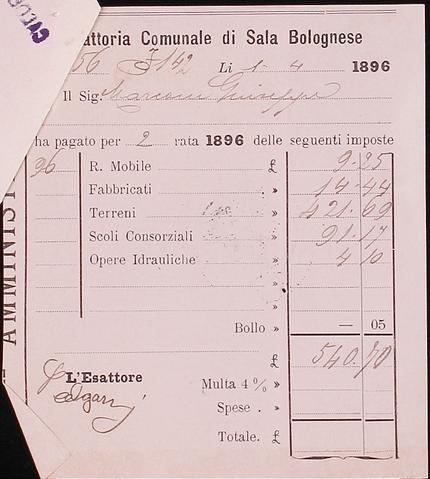 attoria Comunale di Sala Bolognese
56 F 142 Li 1 - 4 1896
Il Sig. Marconi Giuseppe
ha pagato per 2 rata 1896 delle seguenti imposte
96 R. Mobile £ 9.25
Fabbricati » 14.44
Terreni » 421.69
Scoli Consorziali » 91.17
Opere Idrauliche » 4 10
Bollo » — 05
£ 540.70
L'Esattore
Multa 4 % »
Spese . »
Totale. £
AMMINIST